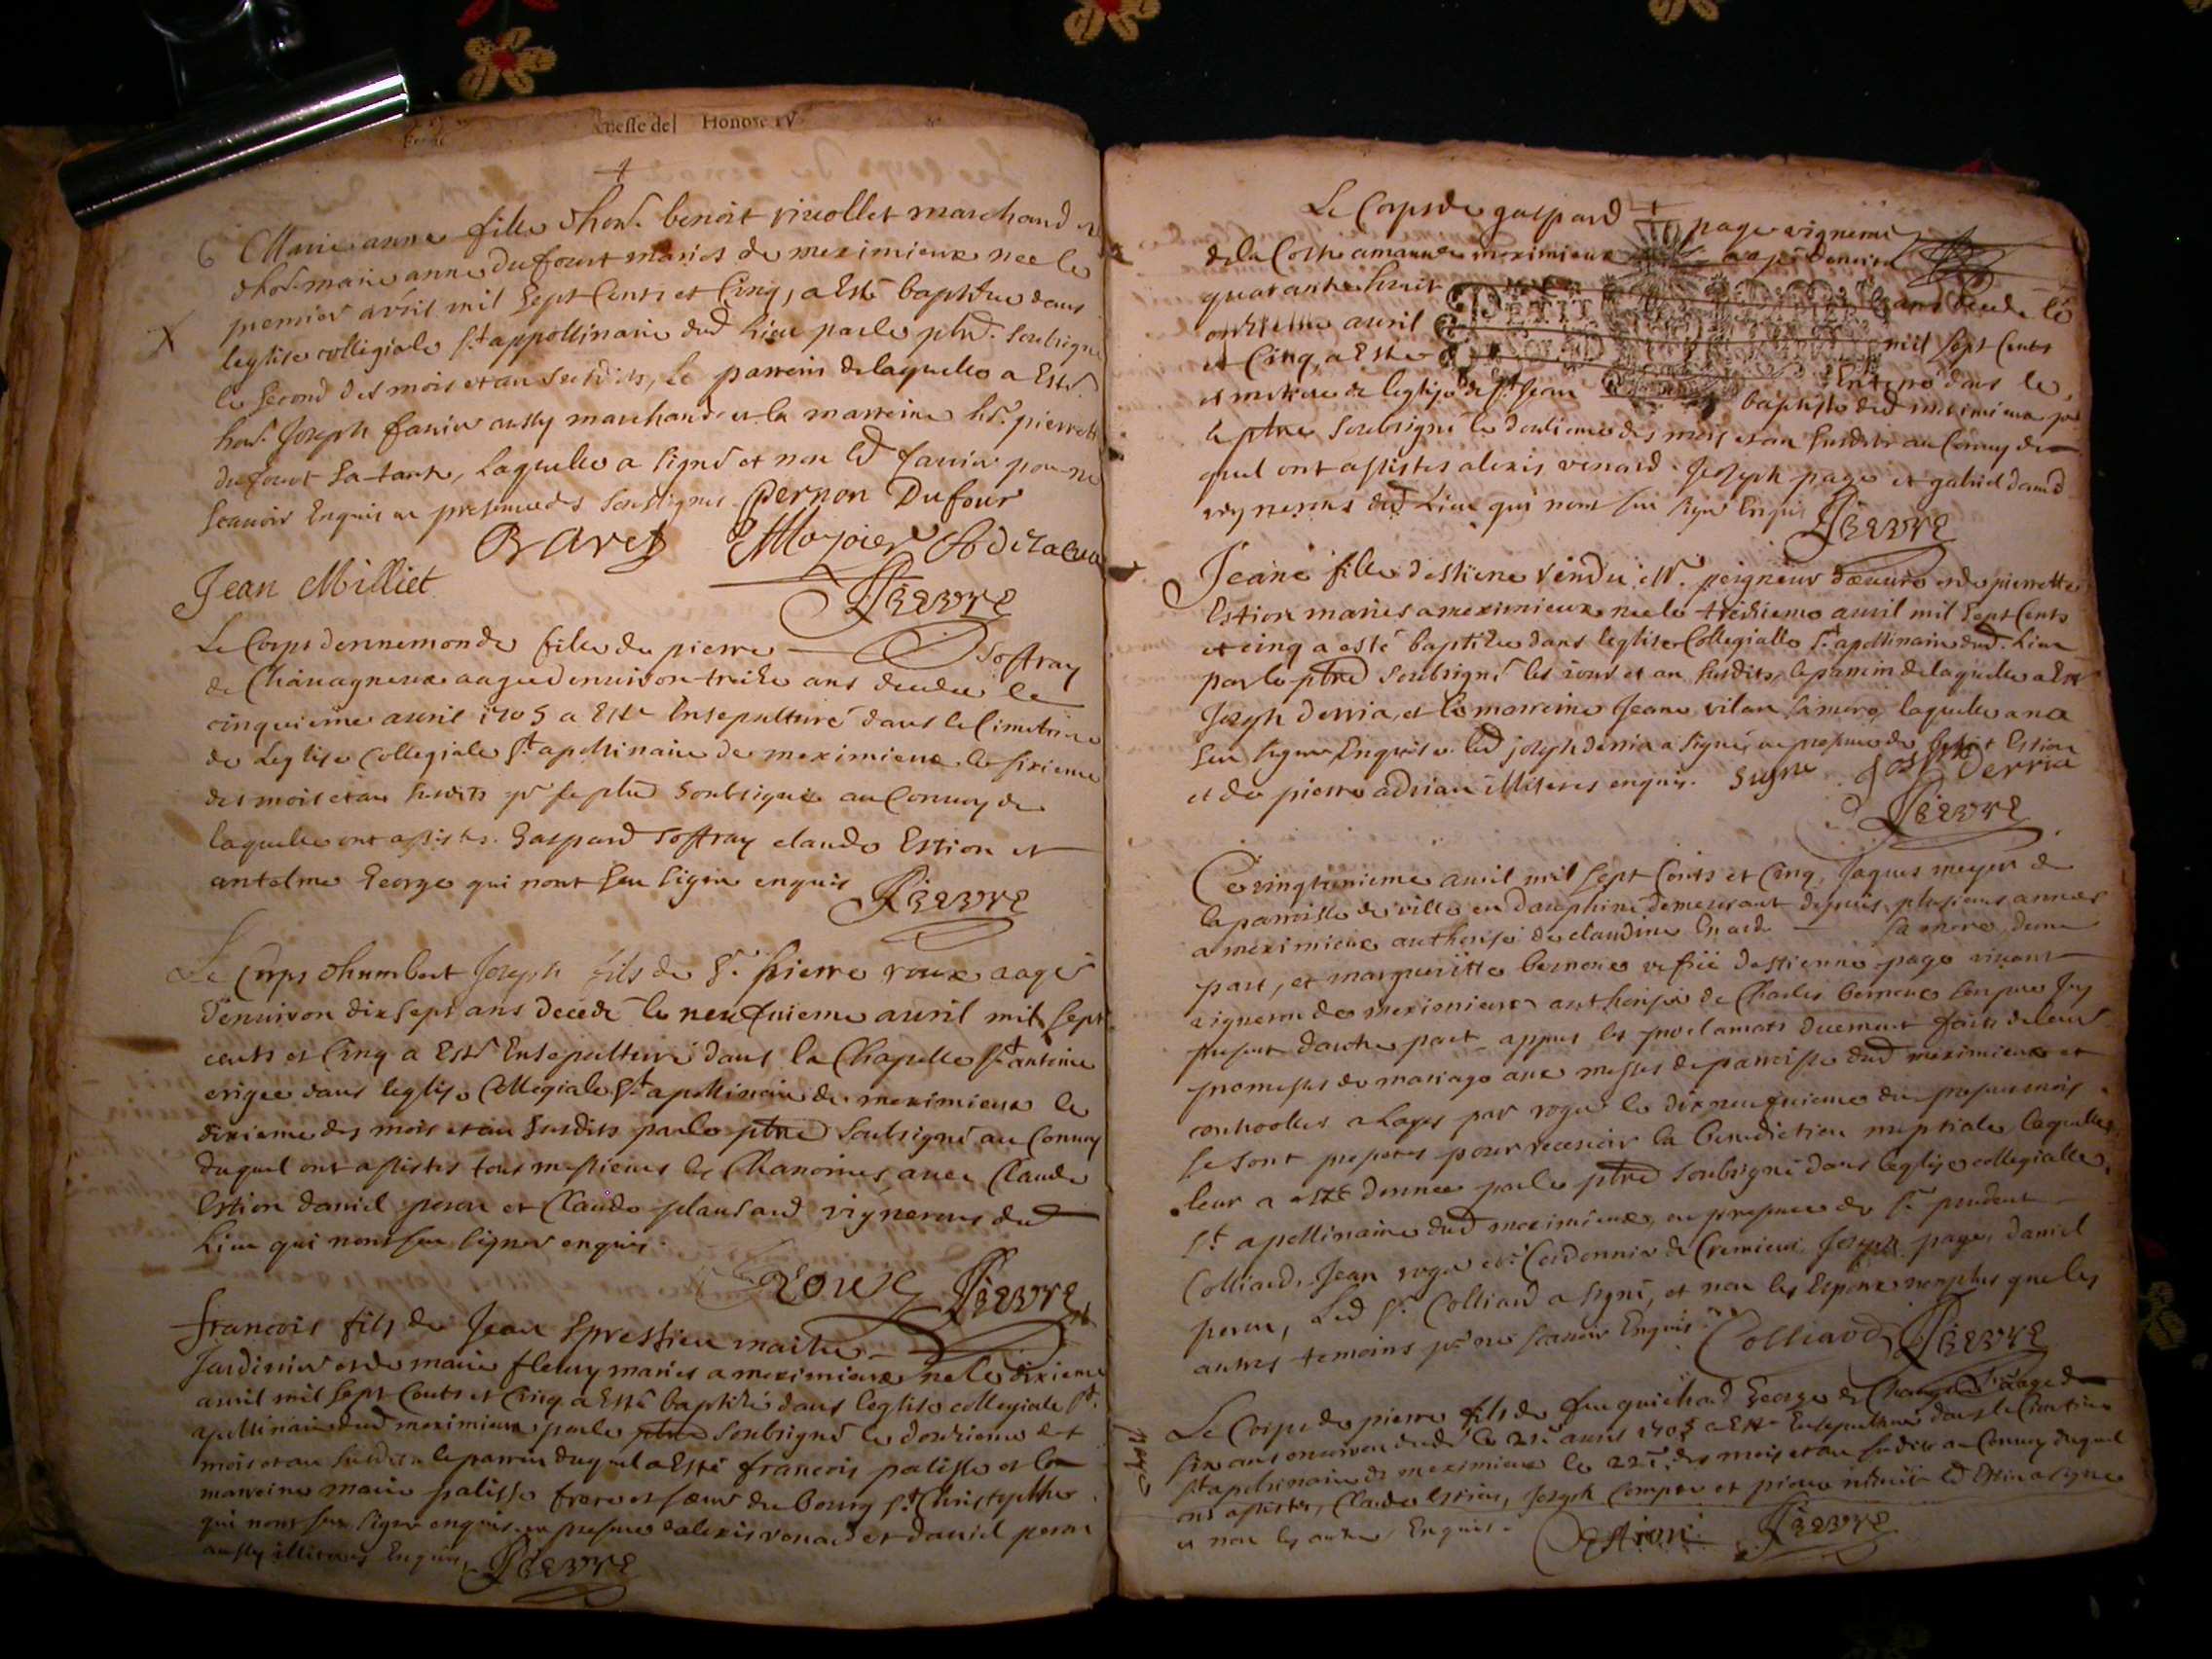 nesse de Honoré IV
Marie anne fille d'hon. benoit vicollet marchand et
d'ho. marie anne dufourt mariés de meximieux nee le
premier avril mil sept cents et cinq, a esté baptisée dans
leglise collegiale St appollinaire dud lieu par le ptre. soubsigne
le second des mois et an susdits, le parrein de laquelle a esté
hon. Joseph favier aussy marchand et la marreine ho. pierrette
dufourt sa tante, laquelle a signé et non led favier pour ne
scavoir enquis en presence des soussignes Pernon Dufour
Bavet
Jean Milliet
Le Corps dennemonde fille de pierre soffray
de Chavagneux aagee denviron treize ans decedee le
cinquieme avril 1705 a esté ensepulturé dans le cimetiere
de leglise collegiale St apollinaire de meximieux le sixieme
des mois et an susdits pr le ptre soubsigné au convoy de
laquelle ont assistes. Gaspard soffray claude Estion et
antelme George qui nont seu signer enquis
Le Corps d'humbert Joseph fils de Sr. pierre roux aagé
denviron dix sept ans decedé le neufvieme avril mil sept
cents et cinq a esté ensepulturé dans la Chapelle St antoine
erigee dans leglise Collegiale St apollinaire de meximieux le
dixieme des mois et an susdits par le ptre soubsigné au convoy
duquel ont assistes tous messieurs les Chanoines avec Claude
Estion daniel peron et Claude plansard vignerons dud
lieu qui nont seu signer enquis.
Roux
francois fils de Jean Spressieu maitre
Jardinier et de marie fleury mariés a meximieux né le dixieme
avril mil sept cents et cinq a esté baptisé dans leglise collegiale St.
apollinaire dud meximieux par le ptre soubsigné le douzieme des
mois et an susdits le parrin duquel a esté francois palisse et la
marreine marie palisse frere et soeur du bourg St Christophle
qui nont seu signer enquis en presence d'alexis venard et daniel peron
aussy illiteres enquis,
Le Corps de gaspard page vigneron
de la Coste amanue meximieux aagé denviron
quarante huit ans decede le
onzieme avril mil sept cents
et Cinq, a esté Enterré dans le
cimetiere de leglise de St Jean baptiste dud meximieux par
le ptre soubsigné le douzieme des mois et an susdits au convoy du
quel ont assistes alexis venard. Joseph page et gabriel
vignerons dud lieu qui nont seu signer enquis
Jeane fille destiene Vendu Mr. peigneur d'oeuvre et de pierrette
Estion mariés a meximieux nee le treizieme avril mil sept cents
et cinq a esté baptisee dans leglise Collegialle St apollinaire dud. lieu
par le ptre soubsigné les jour et an susdits, le parrein de laquelle a esté
Joseph derria, et la marreine Jeane vilan sa mere, laquelle na
seu signer enquise. led joseph derria a signé, en presence de Estion
et de pierre adrian illiteres enquis. Signe Joseph Derria
Ce vingtunieme avril mil sept Cents et Cinq, Jaques meyer de
la parroisse de ville en dauphiné demeurant depuis plusieurs annees
a meximieux authorisé de claudine sa mere, dune
part, et margueritte bernone vefve destienne page vivant
vigneron de meximieux authorisée de Charles bernone son pere icy
present dautre part appres les proclamats duement faits de leurs
promesses de mariage aux messes de parroisse dud meximieux et
controolles a Loyes par roger le dix neufvieme du present mois
se sont presentes pour recevoir la benediction nuptiale, laquelle
leur a esté donnee par le ptre soubsigné dans leglise collegialle
St apollinaire dud meximieux, en presence de Sr prudent
Colliard, Jean roger de Cremieu Joseph page, daniel
peron, Led Sr. Colliard a signé, et non les Espoux non plus que les
autres temoins pr ne scavoir Enquis. Colliard
Le Corps de pierre fils de feu guichard George de aagé de
six ans environ decedé le 21e avril 1705 a esté ensepulturé dans le Cimetiere
St apolinaire de meximieux le 22e. des mois et an susdits au convoy duquel
ont assistes, Claude Estion, Joseph et pierre led Estion a signe
et non les autres Enquis. Estion